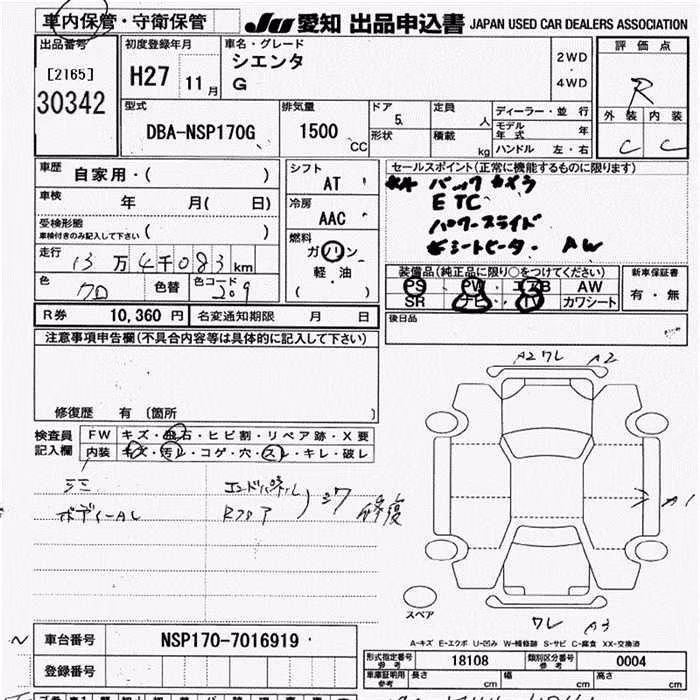 車内保管・守衛保管
JU 愛知 出品申込書 JAPAN USED CAR DEALERS ASSOCIATION
出品番号
[2165]
30342
初度登録年月
H27 11 月
車名・グレード
シエンタ
G
2WD
・
4WD
評価点
R
外装 内装
C C
型式
DBA-NSP170G
排気量
1500 CC
ドア 5
形状
定員 人
積載 kg
ディーラー・並行
モデル年式 年
ハンドル 左・右
車歴 自家用・( )
車検 年 月( 日)
受検形態
車検付きのみ記入して下さい ( )
走行 13万4千083 km
色 色替 色コード 209
シフト AT
冷房 AAC
燃料
ガソリン
・
軽・油
( )
セールスポイント(正常に機能するものに限ります)
バックカメラ
ETC
パワースライド
シートヒーター AW
装備品(純正品に限り○をつけてください)
PS PW エアB AW
SR ナビ TV カワシート
新車保証書
有・無
後日品
R券 10,360 円 名変通知期限 月 日
注意事項申告欄(不具合内容等は具体的に記入して下さい)
修復歴 有〔箇所 〕
検査員記入欄
FW キズ・飛石・ヒビ割・リペア跡・X要
内装 キズ・汚レ・コゲ・穴・スレ・キレ・破レ
エンドパネル
ボディーAL
Rフロア
修復
A2 ワレ A2
A1
ワレ A3
スペア
A-キズ E-エクボ U-凹み W-補修跡 S-サビ C-腐食 XX-交換済
車台番号 NSP170-7016919
登録番号
形式指定番号 参考 18108
類別区分番号 参考 0004
車庫証明用 参考 長さ cm 幅 cm 高さ cm